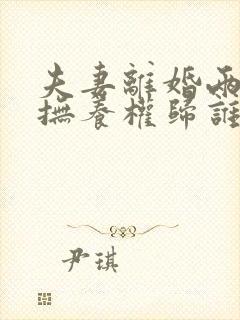 夫妻離婚兩
撫養權歸誰
尹琪